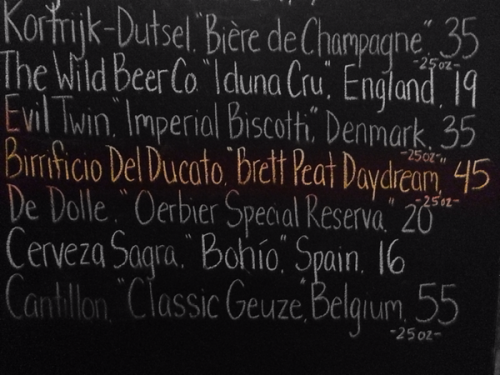 Kortrijk-Dutsel. "Bière de Champagne" 35
-25oz-
The Wild Beer Co. "Iduna Cru". England. 19
Evil Twin. "Imperial Biscotti". Denmark. 35
-25oz-
Birrificio Del Ducato. "Brett Peat Daydream" 45
-25oz-
De Dolle. "Oerbier Special Reserva." 20
Cerveza Sagra. "Bohío". Spain. 16
Cantillon. "Classic Geuze". Belgium. 55
-25oz-